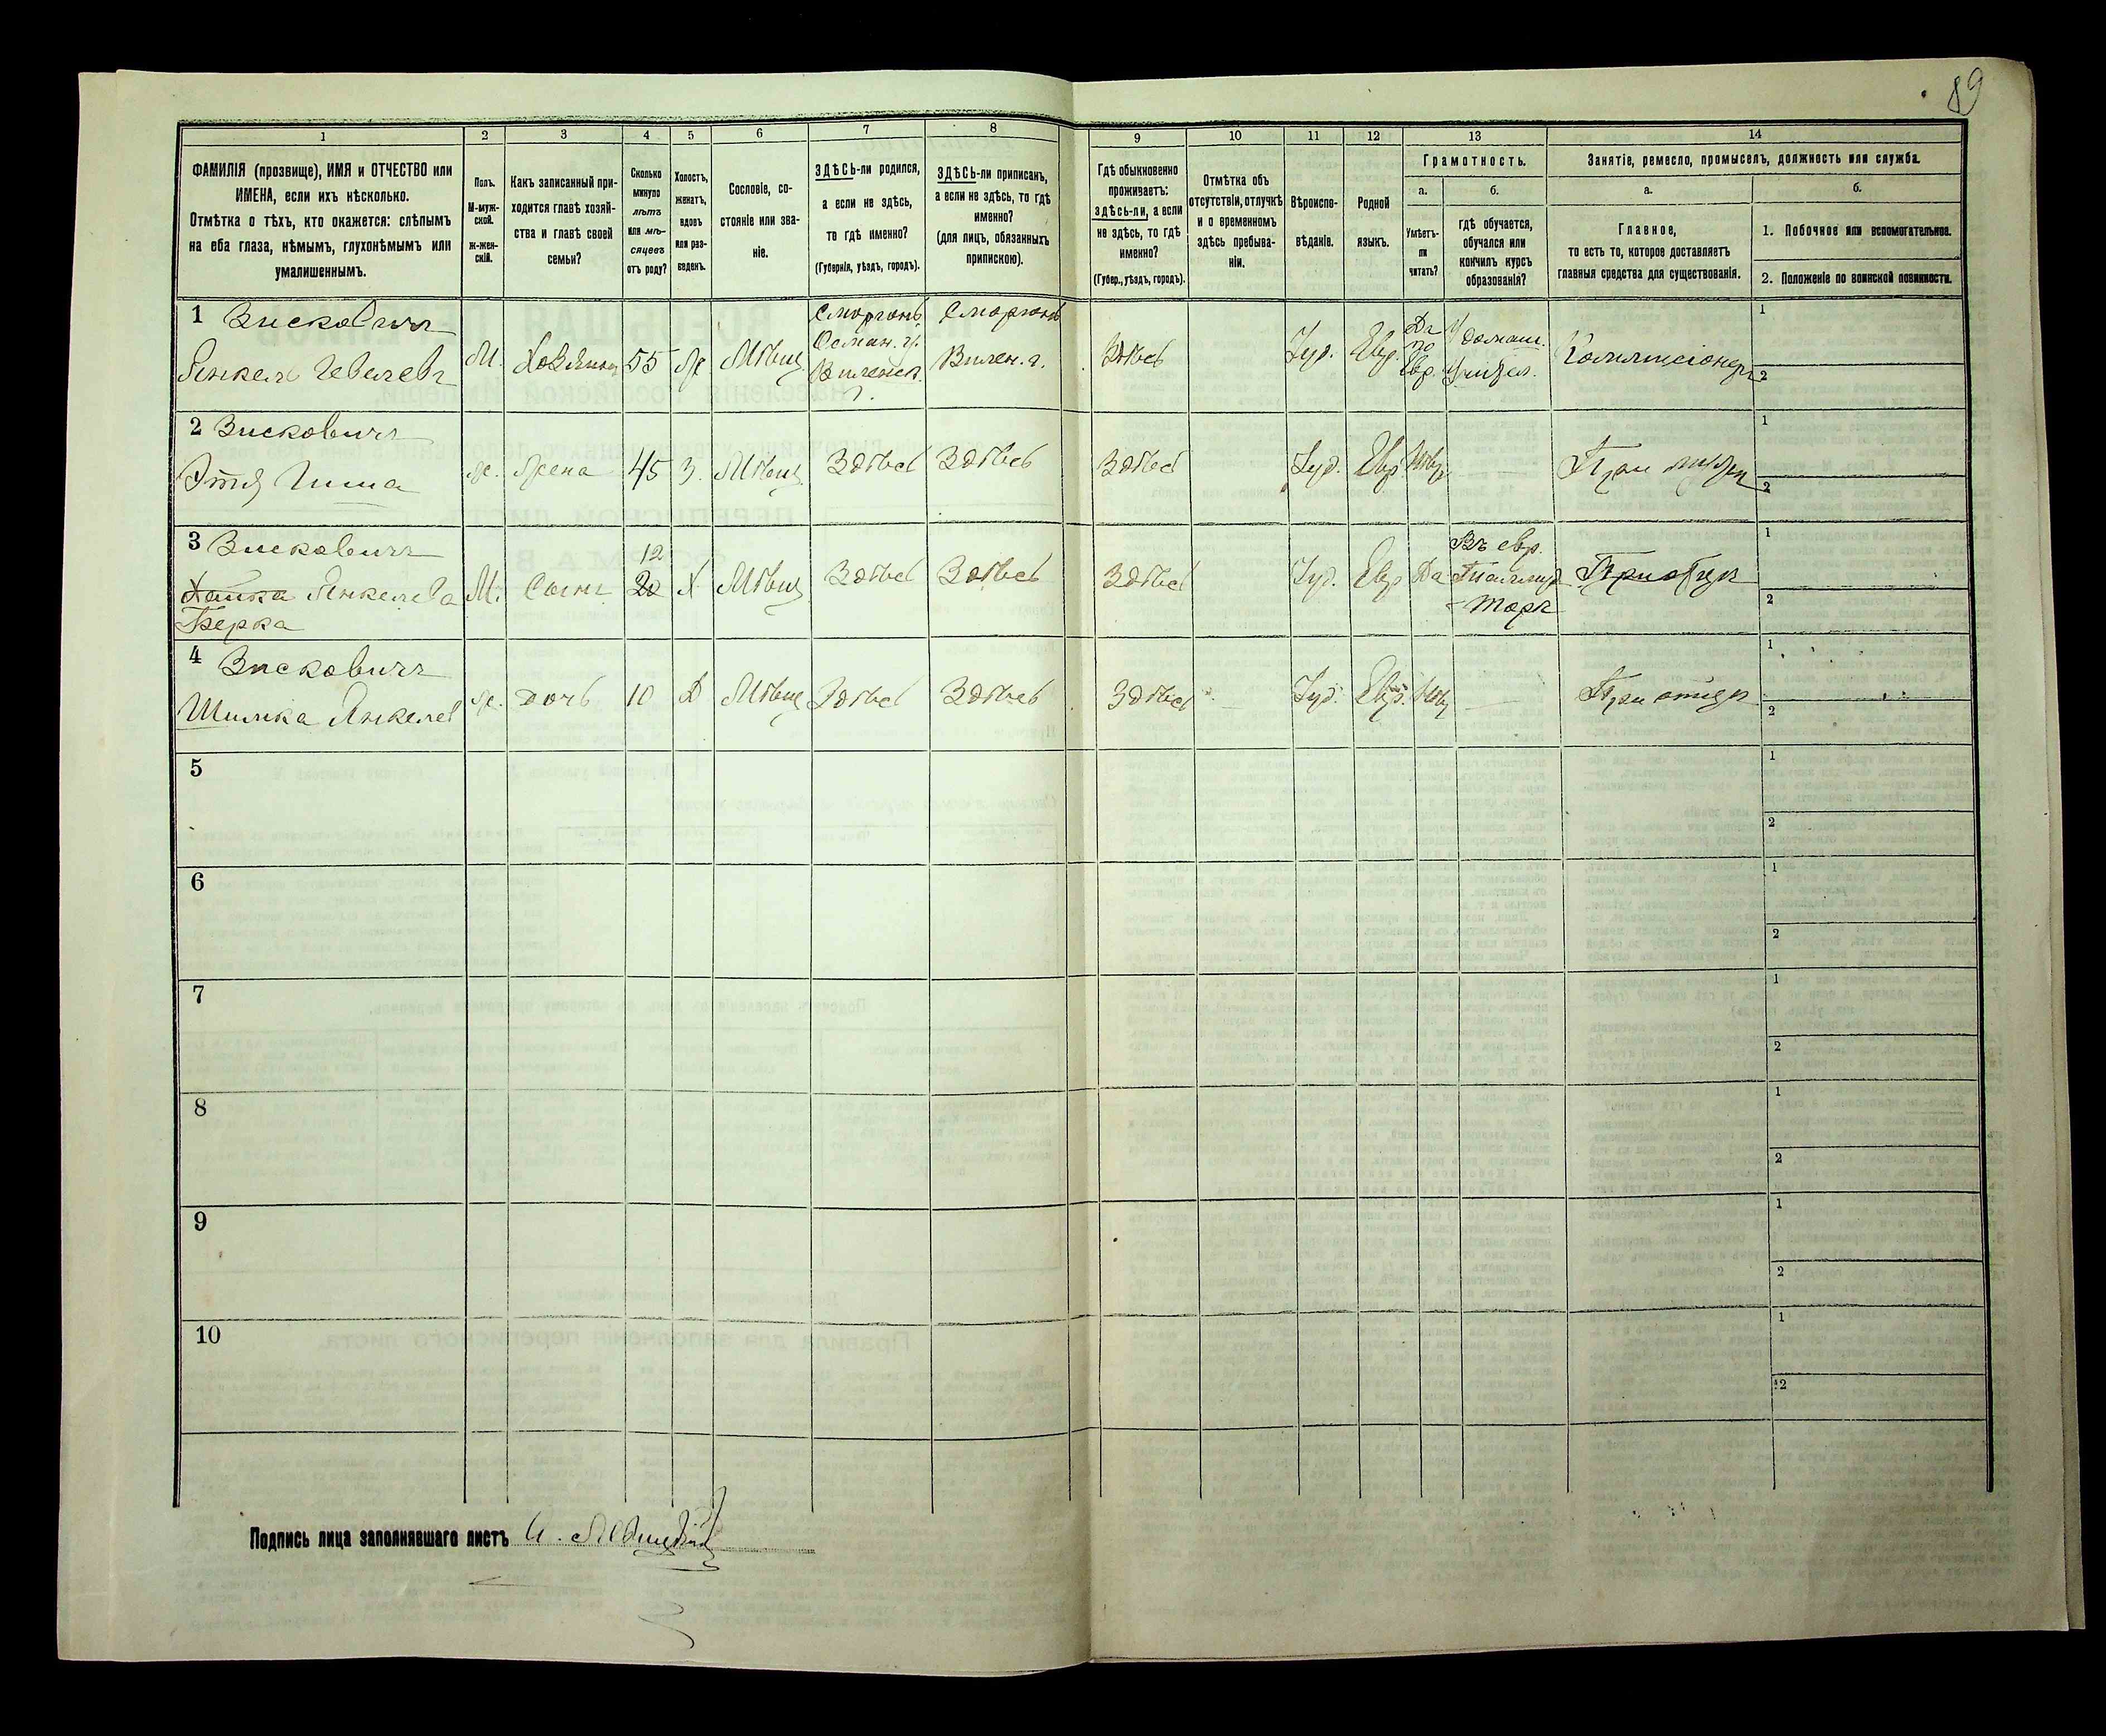 89
1
2
3
4
5
6
7
8
9
10
11
12
13
14
ФАМИЛІЯ (прозвище), ИМЯ и ОТЧЕСТВО или
ИМЕНА, если ихъ нѣсколько.
Отмѣтка о тѣхъ, кто окажется: слѣпымъ
на оба глаза, нѣмымъ, глухонѣмымъ или
умалишеннымъ.
Полъ.
М-муж-
ской.
Ж-жен-
скій.
Какъ записанный при-
ходится главѣ хозяй-
ства и главѣ своей
семьи?
Сколько
минуло
лѣтъ
или мѣ-
сяцевъ
отъ роду?
Холостъ,
женатъ,
вдовъ
или раз-
веденъ.
Сословіе, со-
стояніе или зва-
ніе.
ЗДѢСЬ-ли родился,
а если не здѣсь,
то гдѣ именно?
(Губернія, уѣздъ, городъ).
ЗДѢСЬ-ли приписанъ,
а если не здѣсь, то гдѣ
именно?
(для лицъ, обязанныхъ
припискою).
Гдѣ обыкновенно
проживаетъ:
здѣсь-ли, а если
не здѣсь, то гдѣ
именно?
(Губер., уѣздъ, городъ).
Отмѣтка объ
отсутствіи, отлучкѣ
и о временномъ
здѣсь пребыва-
ніи.
Вѣроиспо-
вѣданіе.
Родной
языкъ.
Грамотность.
а.
Умѣетъ-
ли
читать?
б.
гдѣ обучается,
обучался или
кончилъ курсъ
образованія?
Занятіе, ремесло, промыселъ, должность или служба.
а.
Главное,
то есть то, которое доставляетъ
главныя средства для существованія.
б.
1. Побочное или вспомогательное.
2. Положеніе по воинской повинности.
1 Висковичъ
Янкель Гевелевъ
М.
Хозяинъ
55
Ж
Мѣщ.
Сморгонь
Ошмян. у.
Виленск.
г.
Сморгонь
Вилен. г.
Здѣсь
Іуд.
Евр.
Да
по
Евр.
У домаш.
учител.
Коммисіонеръ
1
2
2 Висковичъ
Этя Гитла
ж.
Жена
45
З.
Мѣщ.
Здѣсь
Здѣсь
Здѣсь
Іуд.
Евр.
Нѣтъ
При мужѣ
1
2
3 Висковичъ
Хаика Янкелева
Берка
М.
Сынъ
12
20
Х
Мѣщ
Здѣсь
Здѣсь
Здѣсь
Іуд.
Евр
Да
Въ евр.
Талмуд
-Торѣ
При отцѣ
1
2
4 Висковичъ
Шимка Янкелев
ж.
дочь
10
Д
Мѣщ
Здѣсь
Здѣсь
Здѣсь
Іуд.
Евр.
Нѣтъ
При отцѣ
1
2
5
1
2
6
1
2
7
1
2
8
1
2
9
1
2
10
1
2
Подпись лица заполнявшаго листъ